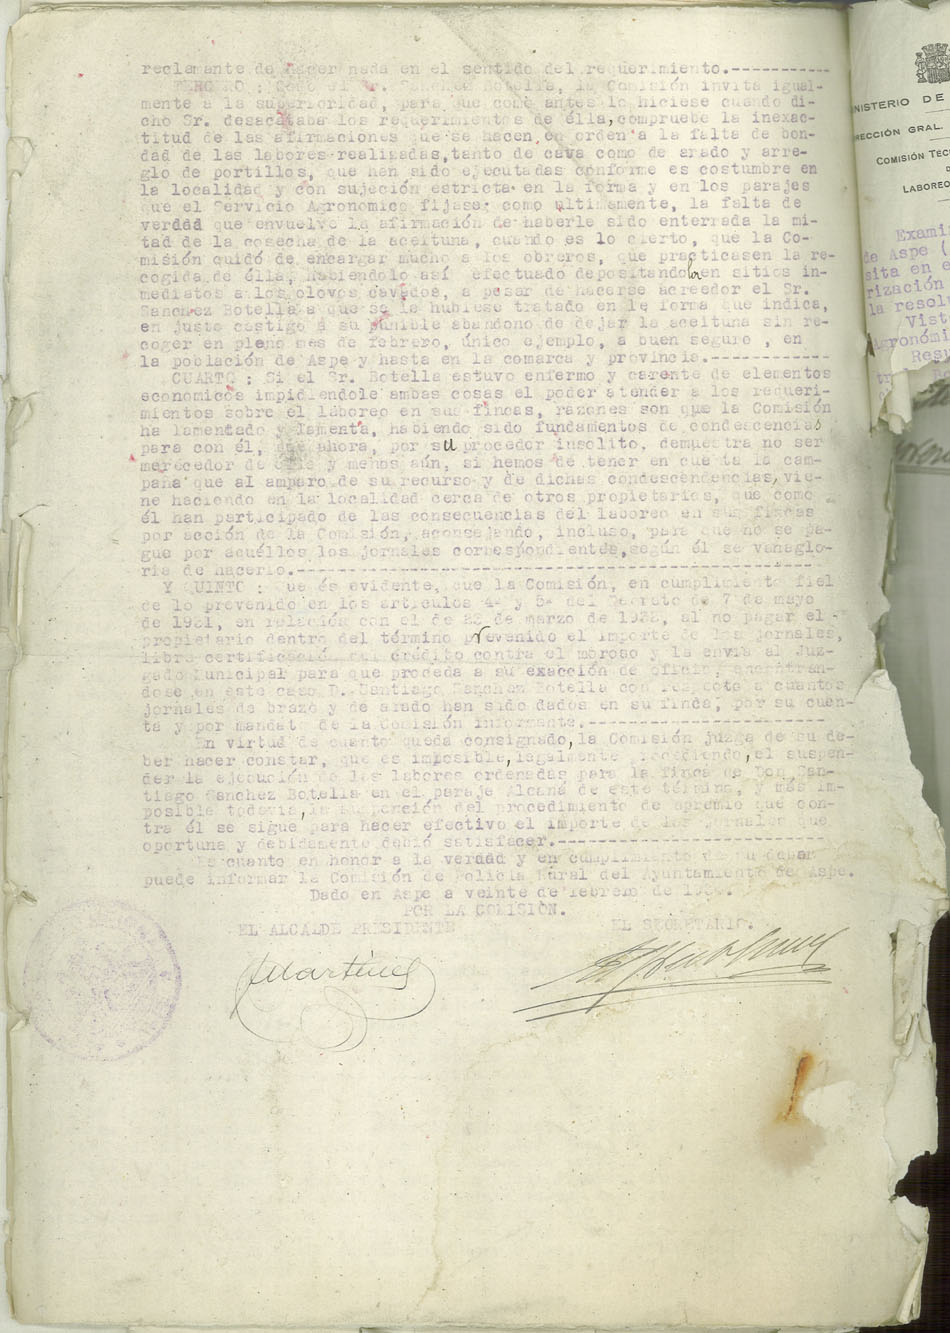 reclamante de hacer nada en el sentido del requerimiento.-----------
TERCERO : Como el Sr. Sanchez Botella, la Comisión invita igual-
mente a la superioridad, para que como antes lo hiciese cuando di-
cho Sr. desacataba los requerimientos de élla, compruebe la inexac-
titud de las afirmaciones que se hacen en orden a la falta de bon-
dad de las labores realizadas, tanto de cava como de arado y arre-
glo de portillos, que han sido ejecutadas conforme es costumbre en
la localidad y con sujeción estricta en la forma y en los parajes
que el Servicio Agronomico fijase; como ultimamente, la falta de
verdad que envuelve la afirmación de haberle sido enterrada la mi-
tad de la cosecha de la aceituna, cuando es lo cierto, que la Co-
misión quidó de encargar mucho a los obreros, que practicasen la re-
cogida de élla, habiendolo así efectuado depositandola en sitios in-
mediatos a los olovos cavados, a pesar de hacerse acreedor el Sr.
Sanchez Botella a que se le hubiese tratado en le forma que indica,
en justo castigo a su punible abandono de dejar la aceituna sin re-
coger en pleno mes de febrero, único ejemplo, a buen seguro , en
la población de Aspe y hasta en la comarca y provincia.-----------
CUARTO : Si el Sr. Botella estuvo enfermo y carente de elementos
economicos impidiendole ambas cosas el poder atender a los requeri-
mientos sobre el láboreo en sus fincas, razones son que la Comisión
ha lamentado y lamenta, habiendo sido fundamentos de condescencias
para con él, que ahora, por su procedor insolito, demuestra no ser
merecedor de ello y menos aún, si hemos de tener en cuenta la cam-
paña que al amparo de su recurso y de dichas condescendencias, vie-
ne haciendo en la localidad cerca de otros propietarios, que como
él han participado de las consecuencias del laboreo en sus fincas
por acción de la Comisión, aconsejando, incluso, para que no se pa-
gue por aquéllos los jornales correspondientes, según él se vanaglo-
ria de hacerlo.------------------------------------------------
Y QUINTO : Que és evidente, que la Comisión, en cumplimiento fiel
de lo prevenido en los articulos 4º y 5º del Decreto de 7 de mayo
de 1931, en relación con el de 23 de marzo de 1932, al no pagar el
propietario dentro del término prevenido el importe de los jornales,
libra certificación del crédito contra el moroso y la envia al Juz-
gado Municipal para que proceda a su exacción de oficio, encontran-
dose en este caso D. Santiago Sanchez Botella con respecto a cuantos
jornales de brazo y de arado han sido dados en su finca, por su cuen-
ta y por mandato de la Comisión informante.-----------------------
En virtud de cuanto queda consignado, la Comisión juzga de su de-
ber hacer constar, que es imposible, legalmente procediendo, el suspen-
der la ejecución de las labores ordenadas para la finca de Don San-
tiago Sanchez Botella en el paraje Alcaná de este término, y más im-
posible todavia, la suspensión del procedimiento de apremio que con-
tra él se sigue para hacer efectivo el importe de los jornales que
oportuna y debidamente debió satisfacer.--------------------------
Es cuanto en honor a la verdad y en cumplimiento de su deber
puede informar la Comisión de Policia Rural del Ayuntamiento de Aspe.
Dado en Aspe a veinte de febrero de
POR LA COMISION.
EL ALCALDE PRESIDENTE EL SECRETARIO.
Martinez
MINISTERIO DE
DIRECCIÓN GRAL.
COMISIÓN TEC
LABOREO
Examin
de Aspe (
sita en e
rización
la resol
Vist
Agronómi
Resu